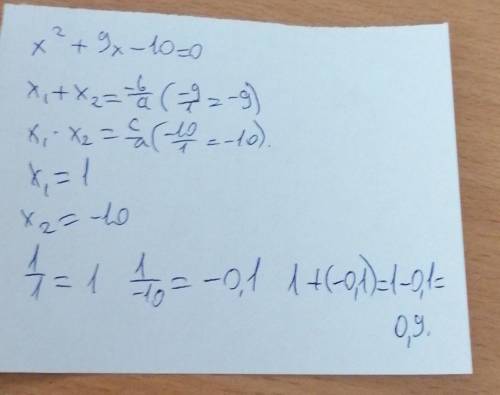 x² + 9x − 10 = 0
x₁ + x₂ = -b/a (-9/1 = -9)
x₁ · x₂ = c/a (-10/1 = -10).
x₁ = 1
x₂ = -10
1/1 = 1 1/-10 = -0,1 1 + (-0,1) = 1 - 0,1 =
0,9.